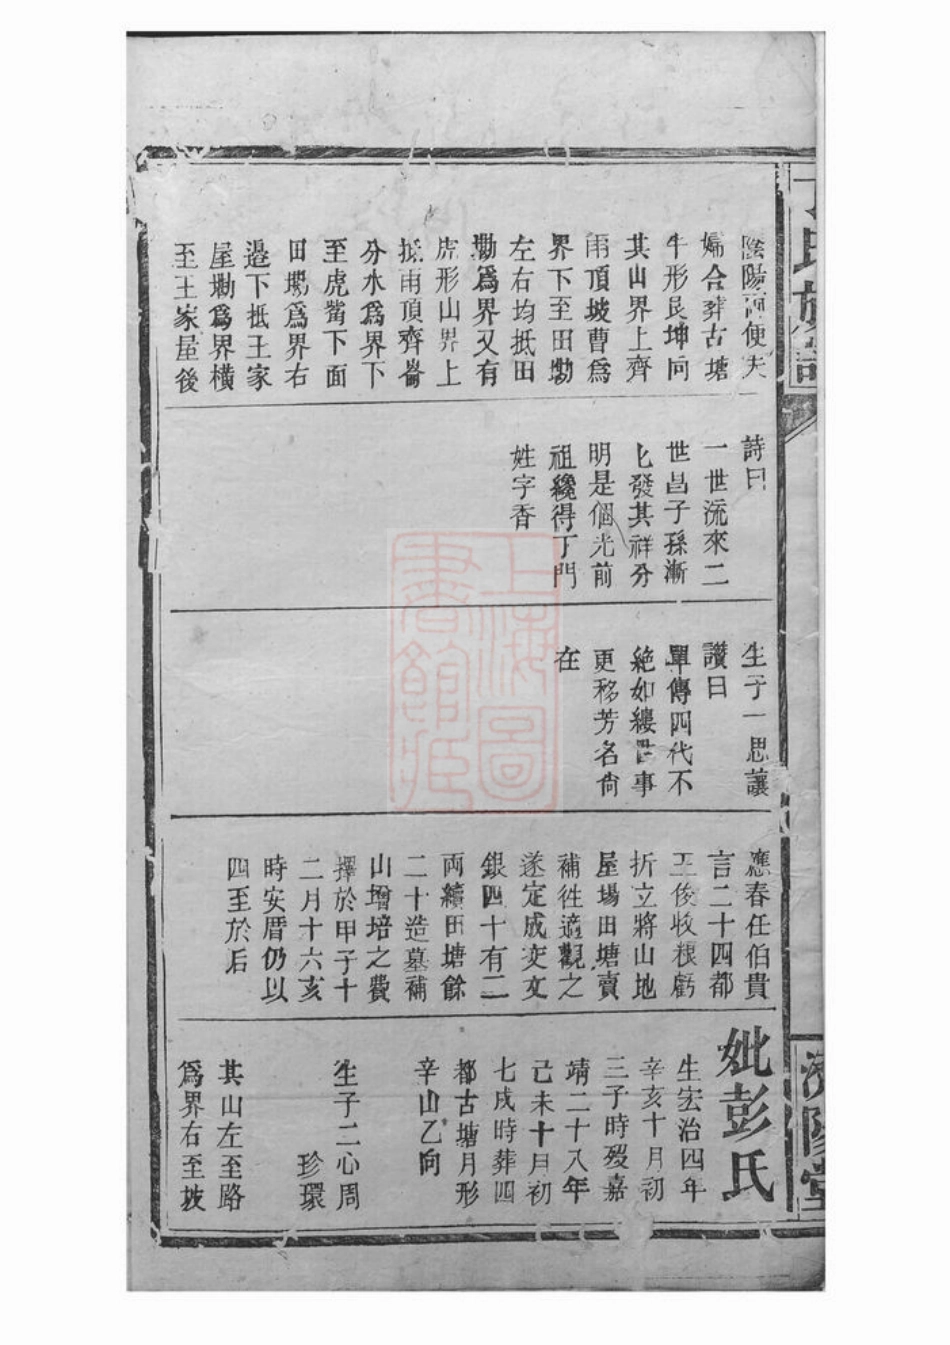 丁氏族譜
濟陽堂
陰陽河便夫
婦合葬古塘
牛形艮坤向
其山界上齊
雨頂坡曹爲
界下至田塝
左右均抵田
塝爲界又有
虎形山界上
抵雨頂齊崙
分水爲界下
至虎嘴下面
田塝爲界右
邊下抵王家
屋塝爲界橫
至王家屋後
詩曰
一世流來二
世昌子孫漸
匕發其祥分
明是個光前
祖纔得丁門
姓字香
生子一思讓
讚曰
單傳四代不
絶如縷世事
更移芳名尙
在
應春任伯貴
言二十四都
王俊收糧虧
折立將山地
屋場田塘賣
補徃適觀之
遂定成交文
銀四十有二
両續田塘餘
二十造墓補
山增培之費
擇於甲子十
二月十六亥
時安厝仍以
四至於后
妣彭氏
生宏治四年
辛亥十月初
三子時歿嘉
靖二十八年
己未十月初
七戌時葬四
都古塘月形
辛山乙向
生子二心周
珍環
其山左至路
爲界右至坡
上海圖書館藏